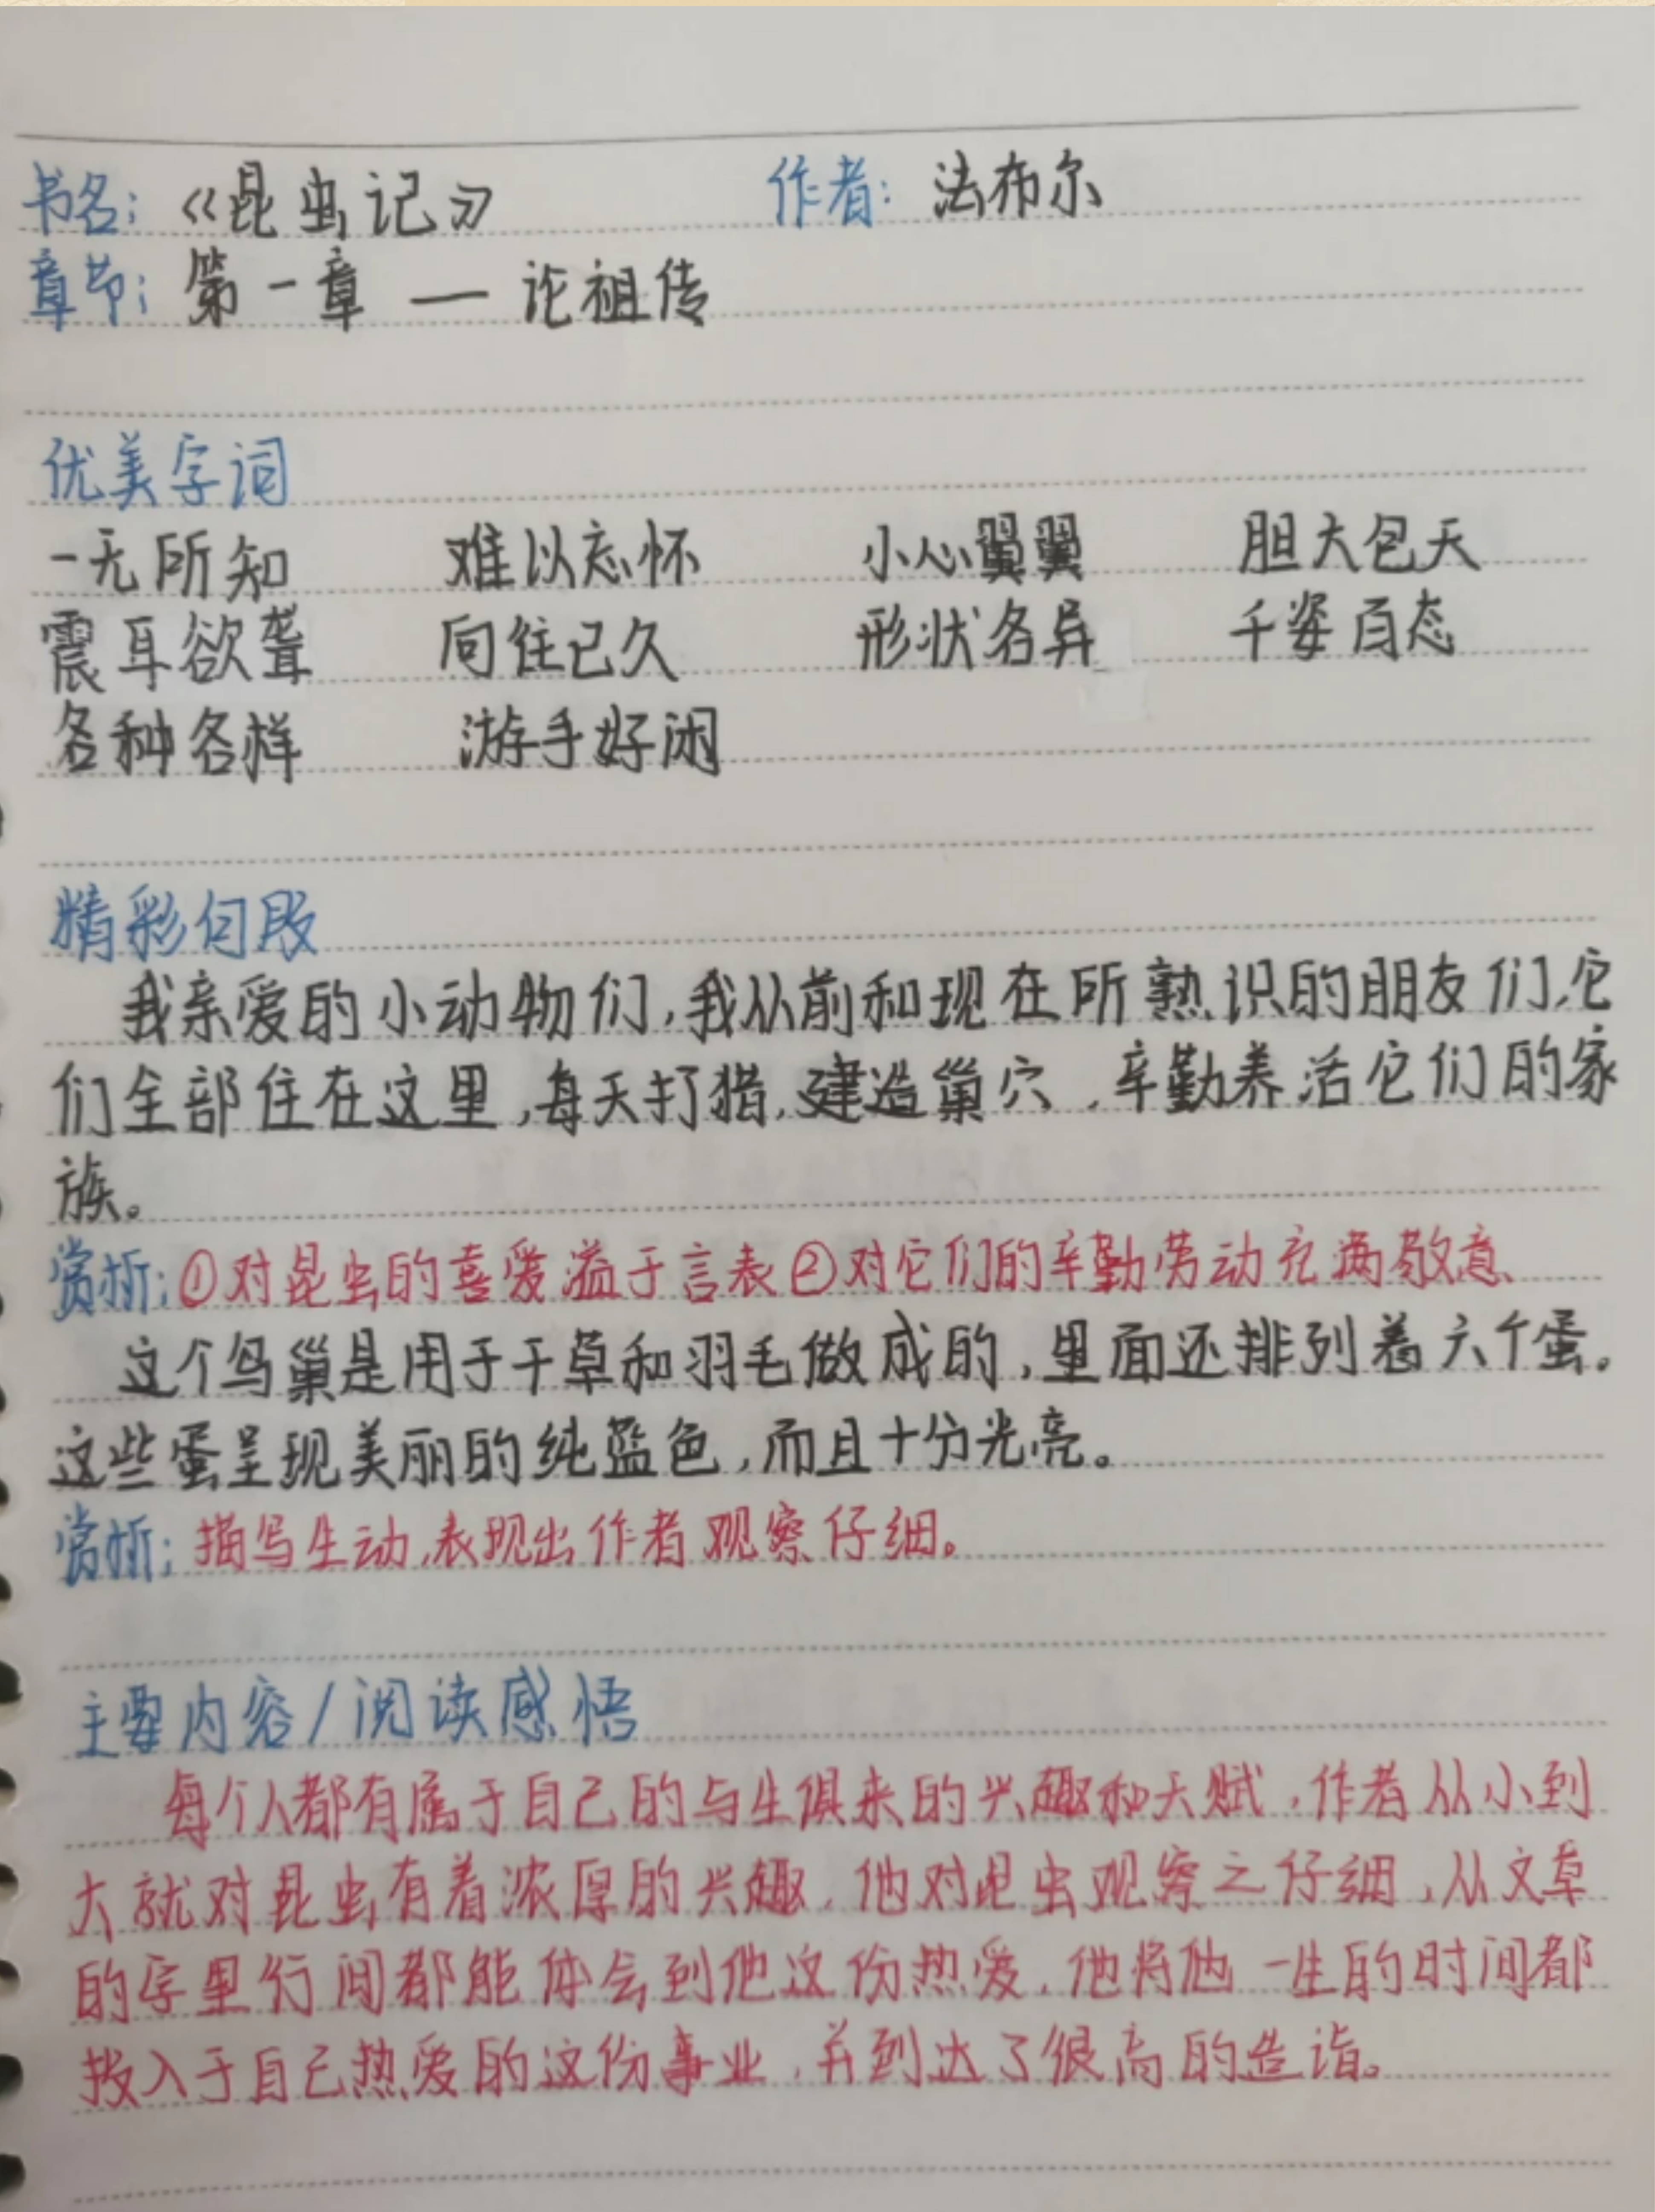 书名：《昆虫记》 作者：法布尔
章节：第一章 — 论祖传
优美字词
一无所知 难以忘怀 小心翼翼 胆大包天
震耳欲聋 向往已久 形状各异 千姿百态
各种各样 游手好闲
精彩句段
我亲爱的小动物们，我从前和现在所熟识的朋友们，它
们全部住在这里，每天打猎，建造巢穴，辛勤养活它们的家
族。
赏析：①对昆虫的喜爱溢于言表②对它们的辛勤劳动充满敬意
这个鸟巢是用于干草和羽毛做成的，里面还排列着六个蛋。
这些蛋呈现美丽的纯蓝色，而且十分光亮。
赏析：描写生动，表现出作者观察仔细。
主要内容/阅读感悟
每个人都有属于自己的与生俱来的兴趣和天赋，作者从小到
大就对昆虫有着浓厚的兴趣，他对昆虫观察之仔细，从文章
的字里行间都能体会到他这份热爱，他将他一生的时间都
投入于自己热爱的这份事业，并到达了很高的造诣。